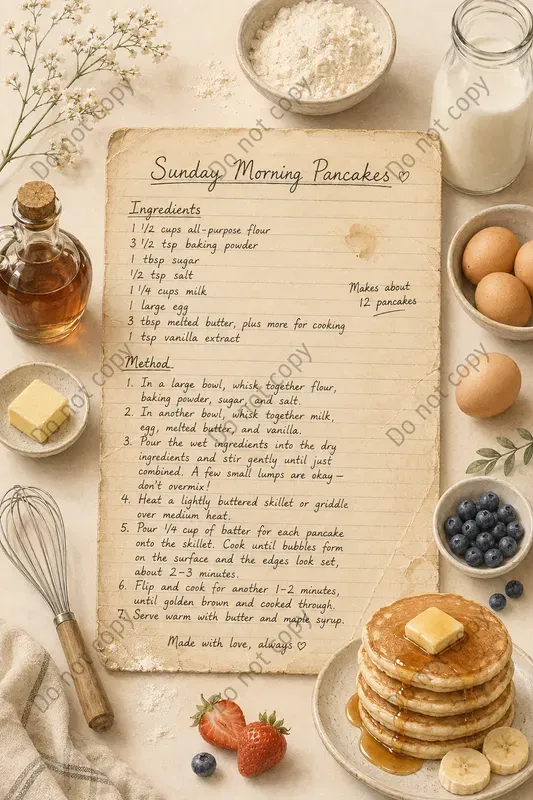 Sunday Morning Pancakes ♡
Ingredients
1 1/2 cups all-purpose flour
3 1/2 tsp baking powder
1 tbsp sugar
1/2 tsp salt
1 1/4 cups milk
1 large egg
3 tbsp melted butter, plus more for cooking
1 tsp vanilla extract
Makes about
12 pancakes
Method
1. In a large bowl, whisk together flour,
baking powder, sugar, and salt.
2. In another bowl, whisk together milk,
egg, melted butter, and vanilla.
3. Pour the wet ingredients into the dry
ingredients and stir gently until just
combined. A few small lumps are okay —
don't overmix!
4. Heat a lightly buttered skillet or griddle
over medium heat.
5. Pour 1/4 cup of batter for each pancake
onto the skillet. Cook until bubbles form
on the surface and the edges look set,
about 2-3 minutes.
6. Flip and cook for another 1-2 minutes,
until golden brown and cooked through.
7. Serve warm with butter and maple syrup.
Made with love, always ♡
Do not copy
Do not copy
Do not copy
Do not copy
Do not copy
Do not copy
Do not copy
Do not copy
Do not copy
Do not copy
Do not copy
Do not copy